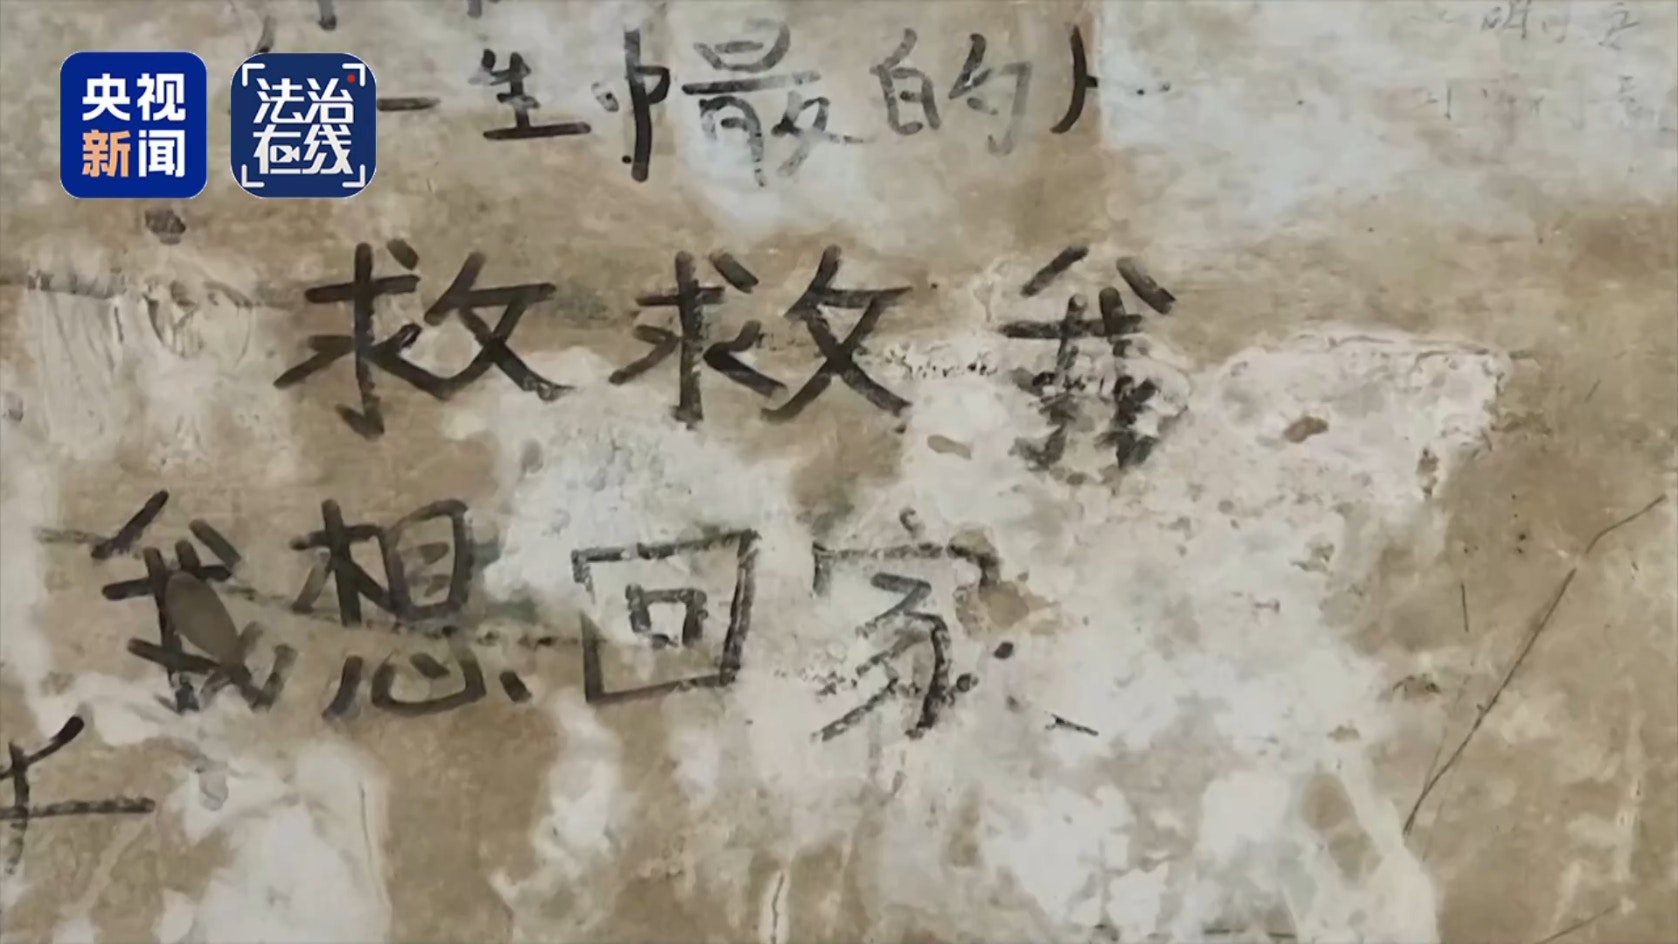 央视
新闻
法治
在线
一生最的
救救我
我想回家